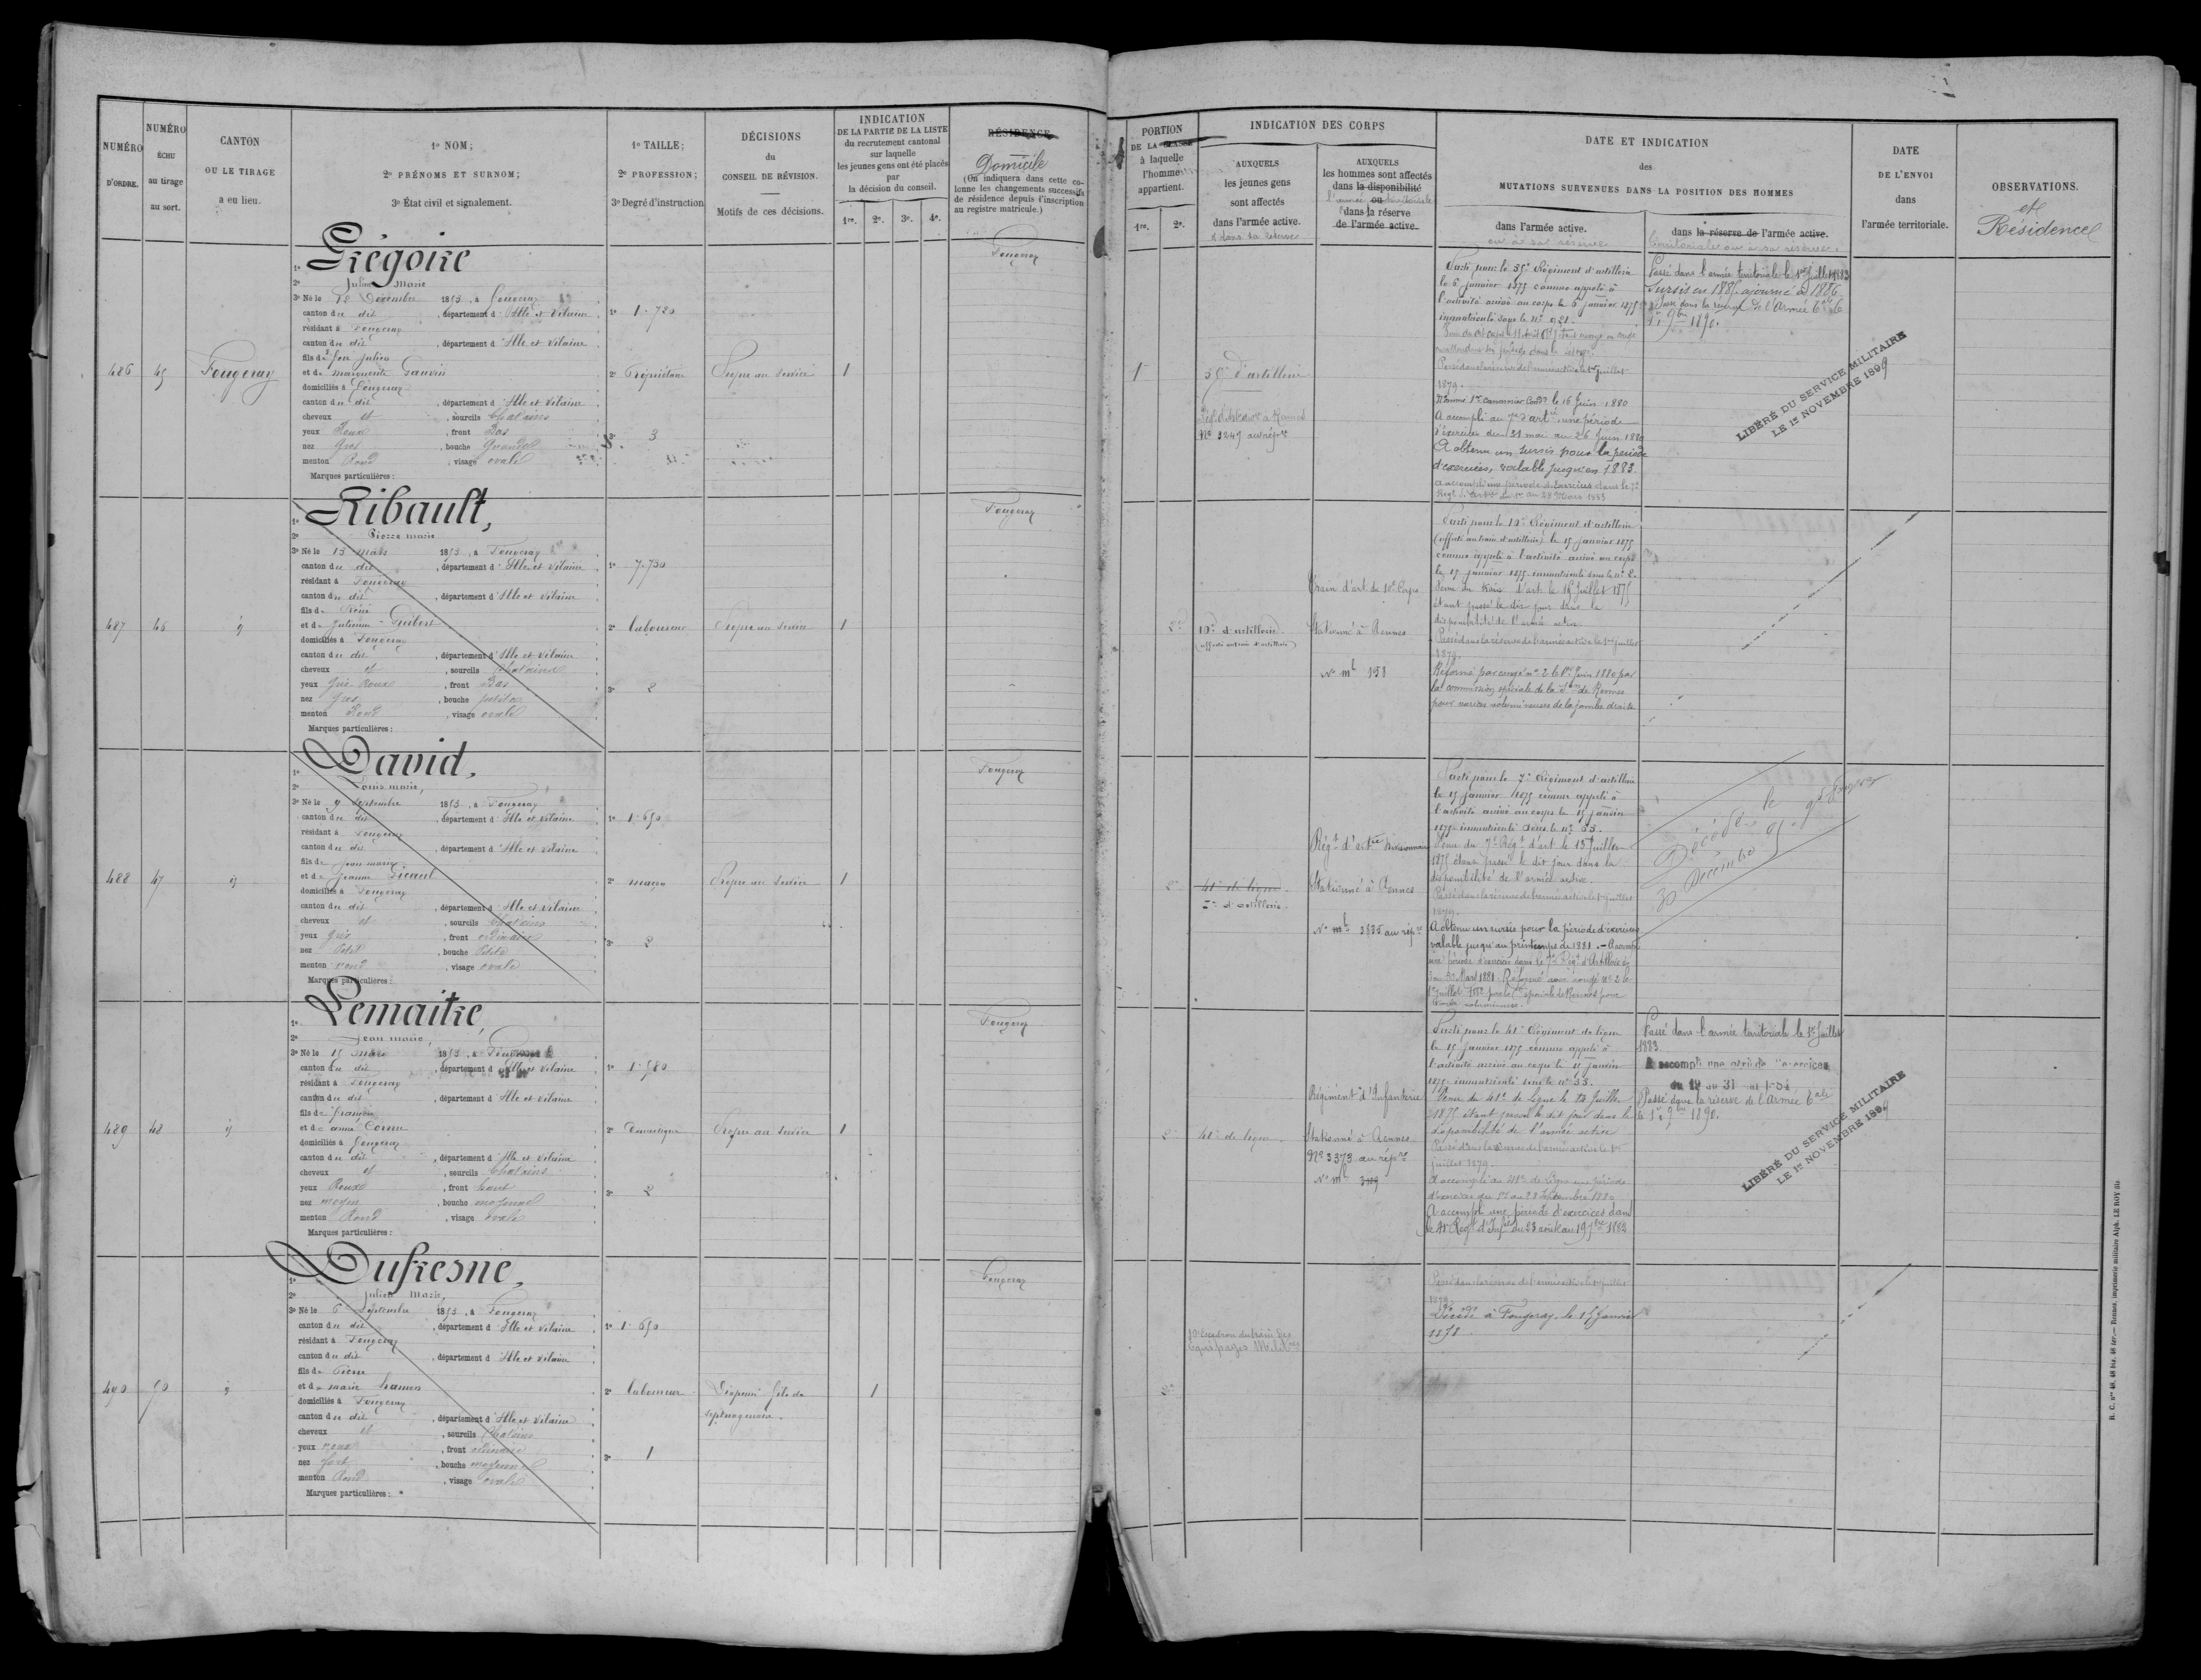 NUMÉRO
D'ORDRE.
NUMÉRO
ÉCHU
au tirage
au sort.
CANTON
OU LE TIRAGE
a eu lieu.
1º NOM;
2º PRÉNOMS ET SURNOM;
3º État civil et signalement.
1º TAILLE;
2º PROFESSION;
3º Degré d'instruction
DÉCISIONS
du
CONSEIL DE RÉVISION.
Motifs de ces décisions.
INDICATION
DE LA PARTIE DE LA LISTE
du recrutement cantonal
sur laquelle
les jeunes gens ont été placés
par
la décision du conseil.
1re. 2e. 3e. 4e.
RÉSIDENCE
Domicile
(On indiquera dans cette co-
lonne les changements successifs
de résidence depuis l'inscription
au registre matricule.)
486
45
Fougeray
1º Grégoire
2º Julien Marie
3º Né le 28 Décembre 1853, à Fougeray
canton du dit, département d'Ille et Vilaine
résidant à Fougeray
canton du dit, département d'Ille et Vilaine
fils de feu Julien
et de marguerite Gauvin
domiciliés à Fougeray
canton du dit, département d'Ille et Vilaine
cheveux et, sourcils Chatains
yeux Roux, front Bas
nez Gros, bouche Grande
menton Rond, visage ovale
Marques particulières :
1º 1.720
2º Propriétaire
3º 3
Propre au service
1
Fougeray
487
46
id
1º Ribault,
2º Pierre marie
3º Né le 13 mars 1853, à Fougeray
canton du dit, département d'Ille et Vilaine
résidant à Fougeray
canton du dit, département d'Ille et Vilaine
fils de René
et de Julienne Guibert
domiciliés à Fougeray
canton du dit, département d'Ille et Vilaine
cheveux et, sourcils Chatains
yeux Gris-Roux, front Bas
nez Gros, bouche petite
menton Rond, visage ovale
Marques particulières :
1º 1.730
2º laboureur
3º 2
Propre au service
1
Fougeray
488
47
id
1º David,
2º Louis marie,
3º Né le 9 Septembre 1853, à Fougeray
canton du dit, département d'Ille et Vilaine
résidant à Fougeray
canton du dit, département d'Ille et Vilaine
fils de Jean marie
et de Jeanne Gicaud
domiciliés à Fougeray
canton du dit, département d'Ille et Vilaine
cheveux et, sourcils Chatains
yeux gris, front ordinaire
nez Petit, bouche Petite
menton rond, visage ovale
Marques particulières :
1º 1.650
2º maçon
3º 2
Propre au service
1
Fougeray
489
48
id
1º Lemaitre,
2º Jean marie,
3º Né le 15 mars 1853, à Fougeray
canton du dit, département d'Ille et Vilaine
résidant à Fougeray
canton du dit, département d'Ille et Vilaine
fils de françois
et de anne Cornu
domiciliés à Fougeray
canton du dit, département d'Ille et Vilaine
cheveux et, sourcils Chatains
yeux Roux, front haut
nez moyen, bouche moyenne
menton Rond, visage ovale
Marques particulières :
1º 1.580
2º Domestique
3º 2
Propre au service
1
Fougeray
490
50
id
1º Dufresne,
2º Julien Marie,
3º Né le 6 Septembre 1853, à Fougeray
canton du dit, département d'Ille et Vilaine
résidant à Fougeray
canton du dit, département d'Ille et Vilaine
fils de Pierre
et de marie hamon
domiciliés à Fougeray
canton du dit, département d'Ille et Vilaine
cheveux et, sourcils Chatains
yeux roux, front ordinaire
nez fort, bouche moyenne
menton Rond, visage ovale
Marques particulières :
1º 1.650
2º laboureur
3º 1
Dispensé fils de
septuagénaire.
1
Fougeray
PORTION
DE LA CLASSE
à laquelle
l'homme
appartient.
1re. 2e.
INDICATION DES CORPS
AUXQUELS
les jeunes gens
sont affectés
dans l'armée active.
et dans sa réserve
AUXQUELS
les hommes sont affectés
dans la disponibilité
ou
l'armée territoriale
dans la réserve
de l'armée active.
DATE ET INDICATION
des
MUTATIONS SURVENUES DANS LA POSITION DES HOMMES
dans l'armée active.
ou à sa réserve
dans la réserve de l'armée active.
territoriale ou à sa réserve.
DATE
DE L'ENVOI
dans
l'armée territoriale.
OBSERVATIONS.
et
Résidence
1re
35e d'artillerie
No 3245 au rép re
Parti pour le 35e Régiment d'artillerie
le 6 janvier 1875 comme appelé à
l'activité arrivé au corps le 6 janvier 1875
immatriculé sous le no 921.
Passé dans la réserve de l'armée active le 1er juillet
1879.
Nommé 1er canonnier Condr le 16 Juin 1880
A accompli au 7e d'artie une période
d'exercices du 31 mai au 26 Juin 1880
A obtenu un sursis pour la période
d'exercices, valable jusqu'en 1883.
A accompli une période d'exercices dans le 7e
Régt d'Artie du 1er au 28 Mars 1883
Passé dans l'armée territoriale le 1er Juillet 1883
Sursis en 1885 ajourné à 1886
Passé dans la réserve de l'Armée tale le
1er 9bre 1890.
LIBÉRÉ DU SERVICE MILITAIRE
LE 1er NOVEMBRE 1899
2e
10e d'artillerie
(affecté au train d'artillerie)
Train d'art. du 10e Corps
Stationné à Rennes
No ml 158
Parti pour le 10e Régiment d'artillerie
(affecté au train d'artillerie) le 15 janvier 1875
comme appelé à l'activité arrivé au corps
le 15 janvier 1875 immatriculé sous le no 2.
Venu du train d'art. le 15 Juillet 1875
étant passé le dit jour dans la
disponibilité de l'armée active.
Passé dans la réserve de l'armée active le 1er juillet
1879.
Réformé par congé no 2 le 1er Juin 1880 par
la commission spéciale de la Son de Rennes
pour varices volumineuses de la jambe droite
2e
41e de ligne.
7e d'artillerie.
Régt d'artie divisionnaire
Stationné à Rennes
No ml 3535 au répre
Parti pour le 7e Régiment d'artillerie
le 15 janvier 1875 comme appelé à
l'activité arrivé au corps le 15 janvier
1875 immatriculé sous le no 33.
Venu du 7e Régt d'art. le 15 Juillet
1875 étant passé le dit jour dans la
disponibilité de l'armée active.
Passé dans la réserve de l'armée active le 1er juillet
1879.
A obtenu un sursis pour la période d'exercices
valable jusqu'au printemps de 1881. — A accompli
une période d'exercices dans le 7e Régt d'Artillerie
Mars 1881. Réformé avec congé no 2 le
Décédé le
30 Décembre
2e
41e de ligne.
Régiment d'Infanterie
Stationné à Rennes.
No 3373 au répre
No ml 3109
Parti pour le 41e Régiment de ligne
le 15 Janvier 1875 comme appelé à
l'activité arrivé au corps le 15 janvier
1875 immatriculé sous le no 33.
Venu du 41e de Ligne le 15 Juillet
1875 étant passé le dit jour dans la
disponibilité de l'armée active.
Passé dans la réserve de l'armée active le 1er
juillet 1879.
A accompli au 41e de Ligne une période
d'exercices du 1er au 28 Septembre 1880
A accompli une période d'exercices dans
le 41e Régt d'Infie du 23 août au 19 7bre 1882
Passé dans l'armée territoriale le 1er Juillet
1883.
A accompli une période d'exercices
Passé dans la réserve de l'Armée tale
le 1er 9bre 1890.
LIBÉRÉ DU SERVICE MILITAIRE
LE 1er NOVEMBRE 1899
2e
10e Escadron du train des
Equipages Militres
Passé dans la réserve de l'armée active le 1er juillet
1879.
Décédé à Fougeray, le 15 Janvier
1878
R. C. nos 48, 48 bis, 48 ter.— Rennes, imprimerie militaire Alph. LE ROY fils